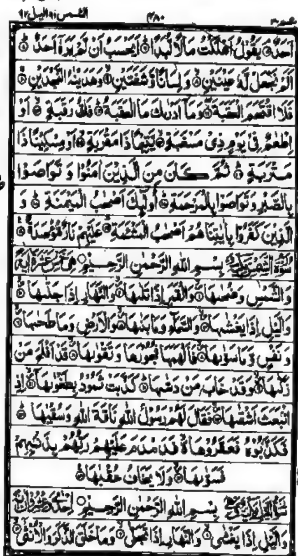 الشمس ٩١ الیل ٩٢
٤٨٠
عم ٣٠
اَحَدٌ ۘ یَقُوْلُ اَهْلَكْتُ مَالًا لُّبَدًا ؕ اَیَحْسَبُ اَنْ لَّمْ یَرَهٗۤ اَحَدٌ ؕ
اَلَمْ نَجْعَلْ لَّهٗ عَیْنَیْنِ ۙ وَ لِسَانًا وَّ شَفَتَیْنِ ۙ وَ هَدَیْنٰهُ النَّجْدَیْنِ ۚ
فَلَا اقْتَحَمَ الْعَقَبَةَ ؗۖ وَ مَاۤ اَدْرٰىكَ مَا الْعَقَبَةُ ؕ فَكُّ رَقَبَةٍ ۙ اَوْ
اِطْعٰمٌ فِیْ یَوْمٍ ذِیْ مَسْغَبَةٍ ۙ یَّتِیْمًا ذَا مَقْرَبَةٍ ۙ اَوْ مِسْكِیْنًا ذَا
مَتْرَبَةٍ ؕ ثُمَّ كَانَ مِنَ الَّذِیْنَ اٰمَنُوْا وَ تَوَاصَوْا
بِالصَّبْرِ وَ تَوَاصَوْا بِالْمَرْحَمَةِ ؕ اُولٰٓىِٕكَ اَصْحٰبُ الْمَیْمَنَةِ ؕ وَ
الَّذِیْنَ كَفَرُوْا بِاٰیٰتِنَا هُمْ اَصْحٰبُ الْمَشْـَٔمَةِ ؕ عَلَیْهِمْ نَارٌ مُّؤْصَدَةٌ ۠
سُوْرَةُ الشَّمْسِ بِسْمِ اللّٰهِ الرَّحْمٰنِ الرَّحِیْمِ
وَ الشَّمْسِ وَ ضُحٰىهَا ۪ۙ وَ الْقَمَرِ اِذَا تَلٰىهَا ۪ۙ وَ النَّهَارِ اِذَا جَلّٰىهَا ۪ۙ
وَ الَّیْلِ اِذَا یَغْشٰىهَا ۪ۙ وَ السَّمَآءِ وَ مَا بَنٰىهَا ۪ۙ وَ الْاَرْضِ وَ مَا طَحٰىهَا ۪ۙ
وَ نَفْسٍ وَّ مَا سَوّٰىهَا ۪ۙ فَاَلْهَمَهَا فُجُوْرَهَا وَ تَقْوٰىهَا ۪ۙ قَدْ اَفْلَحَ مَنْ
زَكّٰىهَا ۪ۙ وَ قَدْ خَابَ مَنْ دَسّٰىهَا ؕ كَذَّبَتْ ثَمُوْدُ بِطَغْوٰىهَاۤ ۪ۙ اِذِ
انْۢبَعَثَ اَشْقٰىهَا ۪ۙ فَقَالَ لَهُمْ رَسُوْلُ اللّٰهِ نَاقَةَ اللّٰهِ وَ سُقْیٰهَا ؕ
فَكَذَّبُوْهُ فَعَقَرُوْهَا ۪ۙ فَدَمْدَمَ عَلَیْهِمْ رَبُّهُمْ بِذَنْۢبِهِمْ
فَسَوّٰىهَا ۪ۙ وَ لَا یَخَافُ عُقْبٰهَا ۠
بِسْمِ اللّٰهِ الرَّحْمٰنِ الرَّحِیْمِ
وَ الَّیْلِ اِذَا یَغْشٰى ۙ وَ النَّهَارِ اِذَا تَجَلّٰى ۙ وَ مَا خَلَقَ الذَّكَرَ وَ الْاُنْثٰۤى ۙ